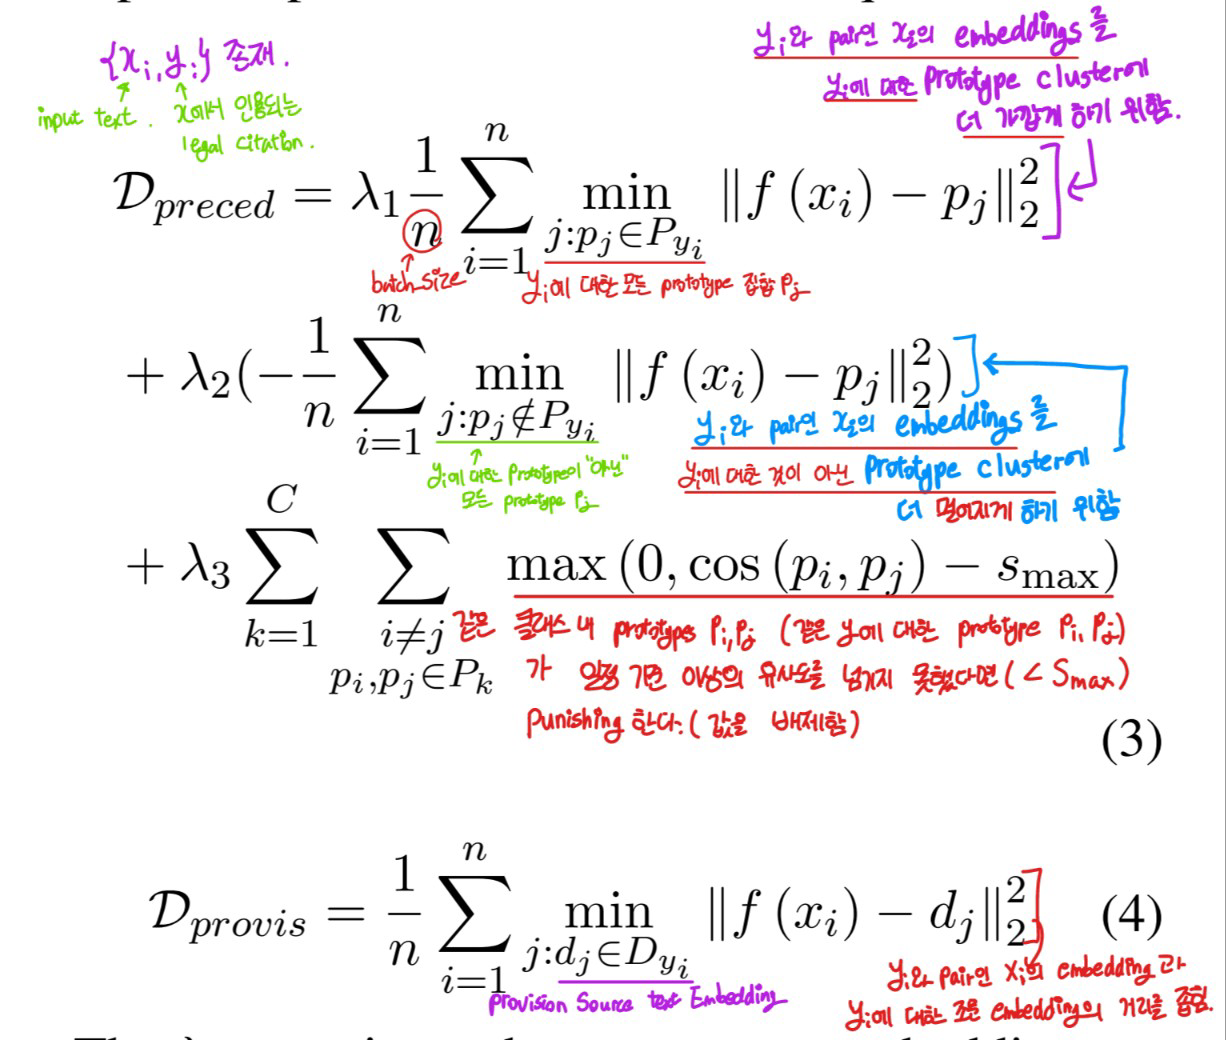 {x_i, y_i} 존재.
input text.
x에서 인용되는
legal citation.
y_i와 pair인 x_i의 embeddings를
y_i에 대한 Prototype cluster에
더 가깝게 하기 위함.
\mathcal{D}_{preced} = λ_1 \frac{1}{n} \sum_{i=1}^{n} \min_{j:p_j∈P_{y_i}} ‖f(x_i) − p_j‖_2^2
batch_size
y_i에 대한 모든 prototype 집합 P_j
+ λ_2(−\frac{1}{n} \sum_{i=1}^{n} \min_{j:p_j∉P_{y_i}} ‖f(x_i) − p_j‖_2^2)
y_i에 대한 Prototype이 "아닌"
모든 prototype P_j
y_i와 pair인 x_i의 embeddings를
y_i에 대한 것이 아닌 Prototype cluster에
더 멀어지게 하기 위함
+ λ_3 \sum_{k=1}^{C} \sum_{i≠j, p_i,p_j∈P_k} max(0, cos(p_i, p_j) − s_{max})
같은 클래스 내 prototypes P_i, P_j (같은 y에 대한 prototype P_i, P_j)
가 일정 기준 이상의 유사도를 넘기지 못했다면 (< S_max)
Punishing 한다. (값을 배제함)
(3)
\mathcal{D}_{provis} = \frac{1}{n} \sum_{i=1}^{n} \min_{j:d_j∈D_{y_i}} ‖f(x_i) − d_j‖_2^2 (4)
Provision Source text Embedding
y_i와 pair인 x_i의 embedding과
y_i에 대한 조문 embedding의 거리를 좁힘.